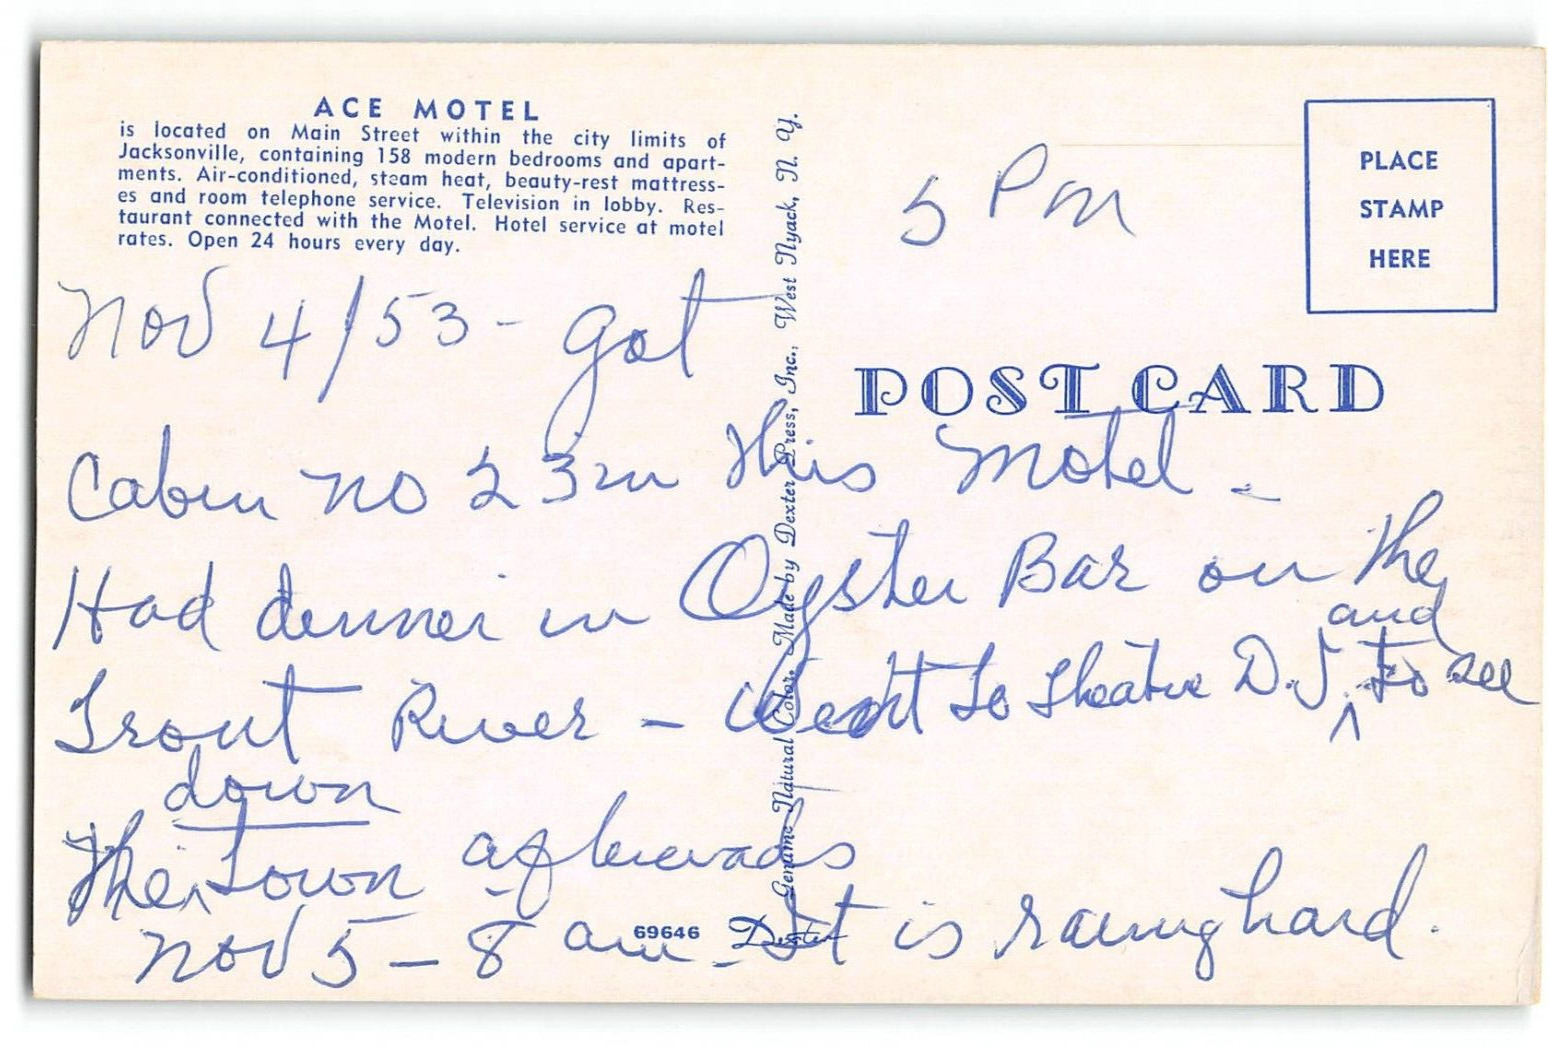 ACE MOTEL
is located on Main Street within the city limits of
Jacksonville, containing 158 modern bedrooms and apart-
ments. Air-conditioned, steam heat, beauty-rest mattress-
es and room telephone service. Television in lobby. Res-
taurant connected with the Motel. Hotel service at motel
rates. Open 24 hours every day.
Genuine Natural Color. Made by Dexter Press, Inc., West Nyack, N. Y.
PLACE
STAMP
HERE
POST CARD
5 Pm
Nov 4/53 - got
Cabin no 23 in this motel -
Had dinner in Oyster Bar on the
Trout River - Went to theatre D.J. and to see
down
the town afterwards
Nov 5 - 8 am - It is raining hard.
69646 Dexter